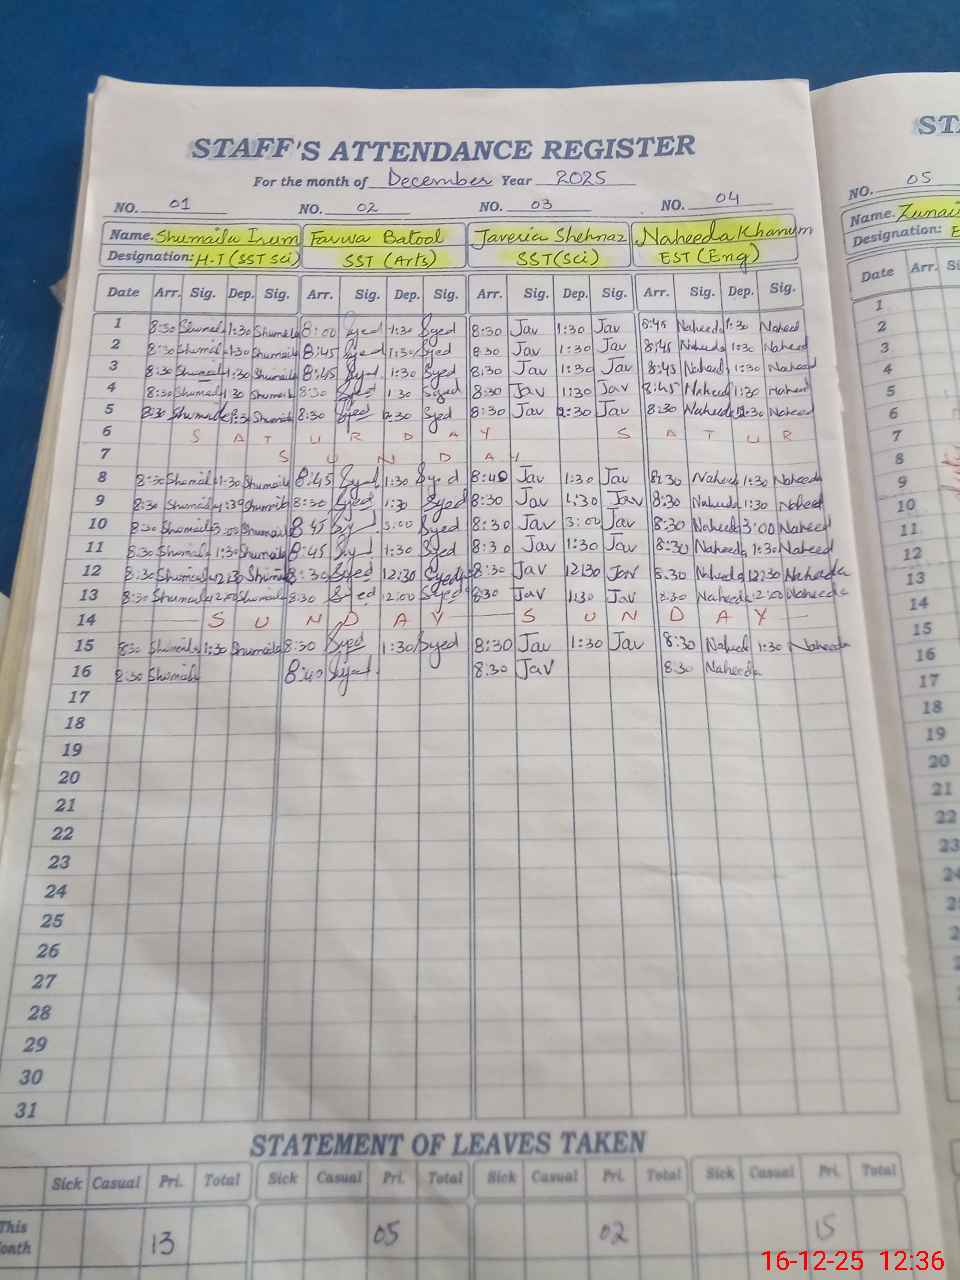 STAFF'S ATTENDANCE REGISTER
For the month of December Year 2025
NO. 01 NO. 02 NO. 03 NO. 04
Name. Shumaila Irum Favwa Batool Javeria Shehnaz Naheeda Khanum
Designation: H.T (SST Sci) SST (Arts) SST (Sci) EST (Eng)
Date Arr. Sig. Dep. Sig. Arr. Sig. Dep. Sig. Arr. Sig. Dep. Sig. Arr. Sig. Dep. Sig.
1 8:30 Shumail 1:30 Shumaila 8:00 Syed 1:30 Syed 8:30 Jav 1:30 Jav 8:45 Naheed 1:30 Naheed
2 8:30 Shumail 1:30 Shumaila 8:45 Syed 1:30 Syed 8:30 Jav 1:30 Jav 8:45 Naheeda 1:30 Naheed
3 8:30 Shumail 1:30 Shumaila 8:45 Syed 1:30 Syed 8:30 Jav 1:30 Jav 8:45 Naheed 1:30 Naheed
4 8:30 Shumail 1:30 Shumaila 8:30 Syed 1:30 Syed 8:30 Jav 1:30 Jav 8:45 Naheed 1:30 Naheed
5 8:30 Shumaila Shumaila 8:30 Syed 12:30 Syed 8:30 Jav 12:30 Jav 8:30 Naheeda 12:30 Naheed
6 S A T U R D A Y S A T U R
7 S U N D A Y
8 8:30 Shumail 1:30 Shumaila 8:45 Syed 1:30 Syed 8:40 Jav 1:30 Jav 8:30 Naheed 1:30 Naheeda
9 8:30 Shumail 1:30 Shumaila 8:30 Syed 1:30 Syed 8:30 Jav 1:30 Jav 8:30 Naheeda 1:30 Naheed
10 8:30 Shumail 3:00 Shumaila 8:45 Syed 3:00 Syed 8:30 Jav 3:00 Jav 8:30 Naheeda 3:00 Naheed
11 8:30 Shumail 1:30 Shumaila 8:45 Syed 1:30 Syed 8:30 Jav 1:30 Jav 8:30 Naheeda 1:30 Naheed
12 8:30 Shumaila 12:30 Shumaila 8:30 Syed 12:30 Syeda 8:30 Jav 12:30 Jav 8.30 Naheeda 12:30 Naheeda
13 8:30 Shumail 12:00 Shumaila 8:30 Syed 12:00 Syed 8:30 Jav 1:30 Jav 8:30 Naheeda 12:00 Naheeda
14 S U N D A Y S U N D A Y
15 8:30 Shumaila 1:30 Shumaila 8:30 Syed 1:30 Syed 8:30 Jav 1:30 Jav 8:30 Naheed 1:30 Naheeda
16 8:30 Shumaila 8:40 Syed 8:30 Jav 8:30 Naheeda
17
18
19
20
21
22
23
24
25
26
27
28
29
30
31
STATEMENT OF LEAVES TAKEN
Sick Casual Pri. Total Sick Casual Pri. Total Sick Casual Pri. Total Sick Casual Pri. Total
This 13 05 02 15
NO. 05
Name.
Designation:
Date Arr.
1
2
3
4
5
6
7
8
9
10
11
12
13
14
15
16
17
18
19
20
21
22
16-12-25 12:36